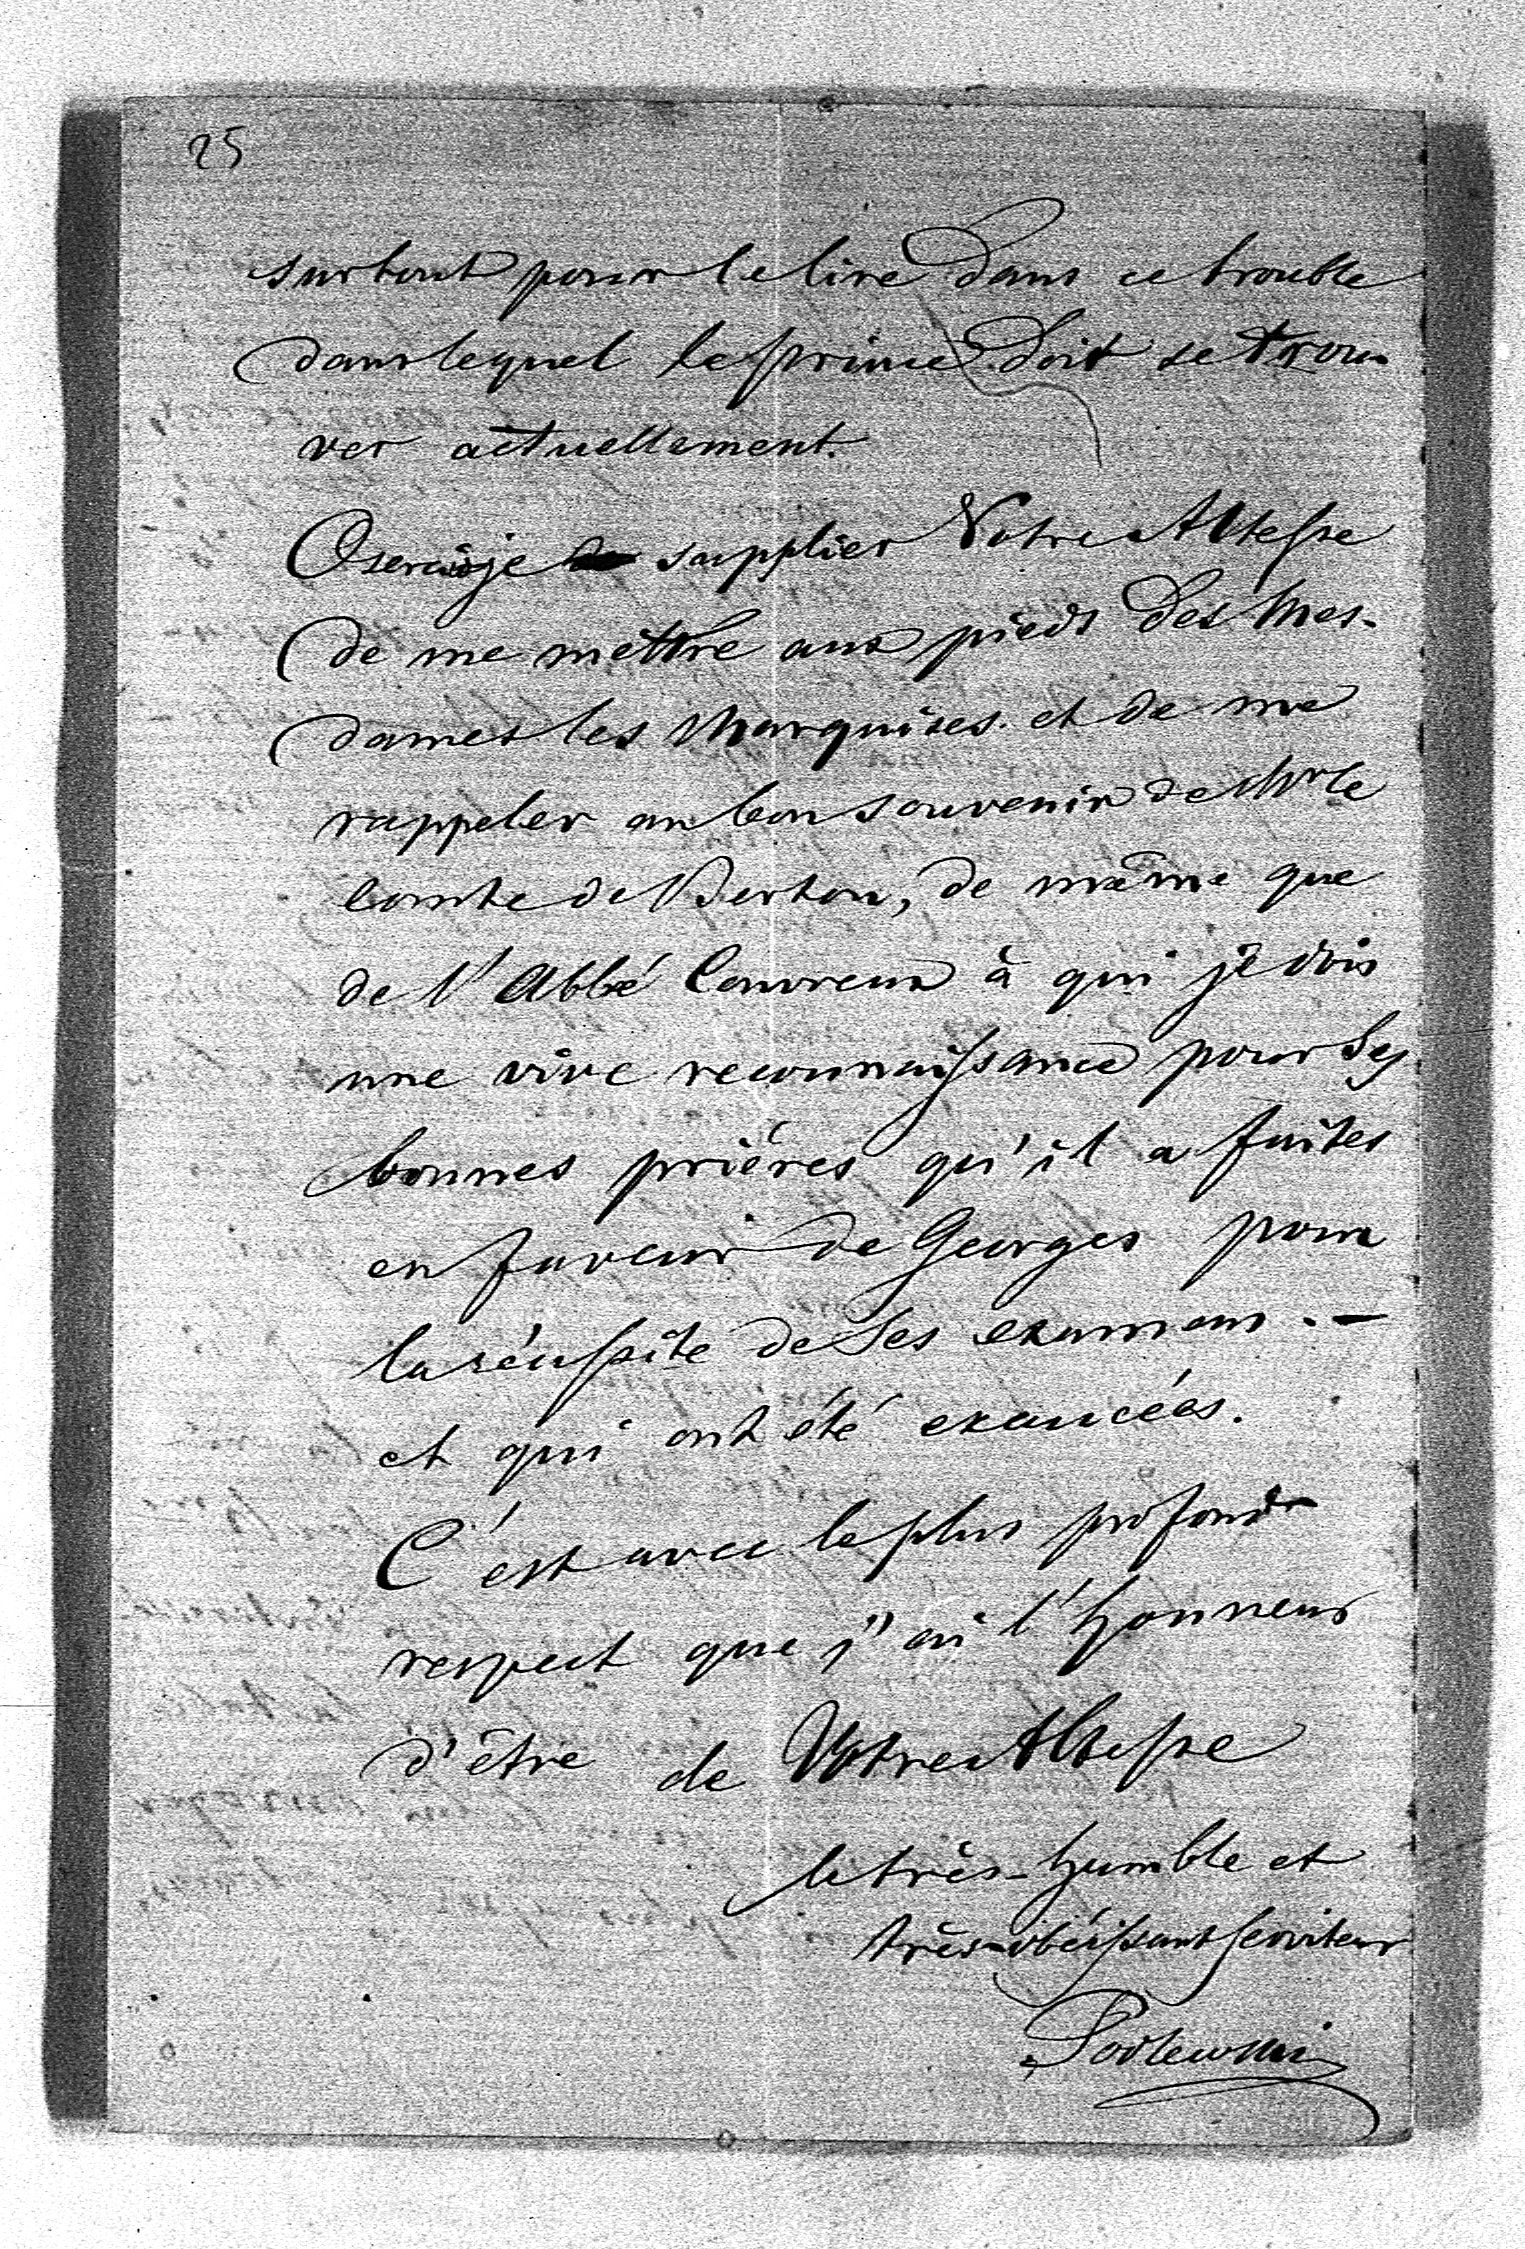 25
surtout pour le lire dans ce trouble
dans lequel le prince doit se trou-
ver actuellement.
Oserai-je supplier Votre Altesse
de me mettre aux pieds des Mes-
dames les Marquises et de me
rappeler au bon souvenir de Mr le
Comte de Berton, de même que
de l'Abbé Couvreux à qui je dois
une vive reconnaissance pour Ses
bonnes prières qu'il a faites
en faveur de Georges pour
la réussite de Ses examens. —
et qui ont été exaucées.
C'est avec le plus profond
respect que j'ai l'honneur
d'être de Votre Altesse
le très-humble et
très-obéissant Serviteur
Podlewski